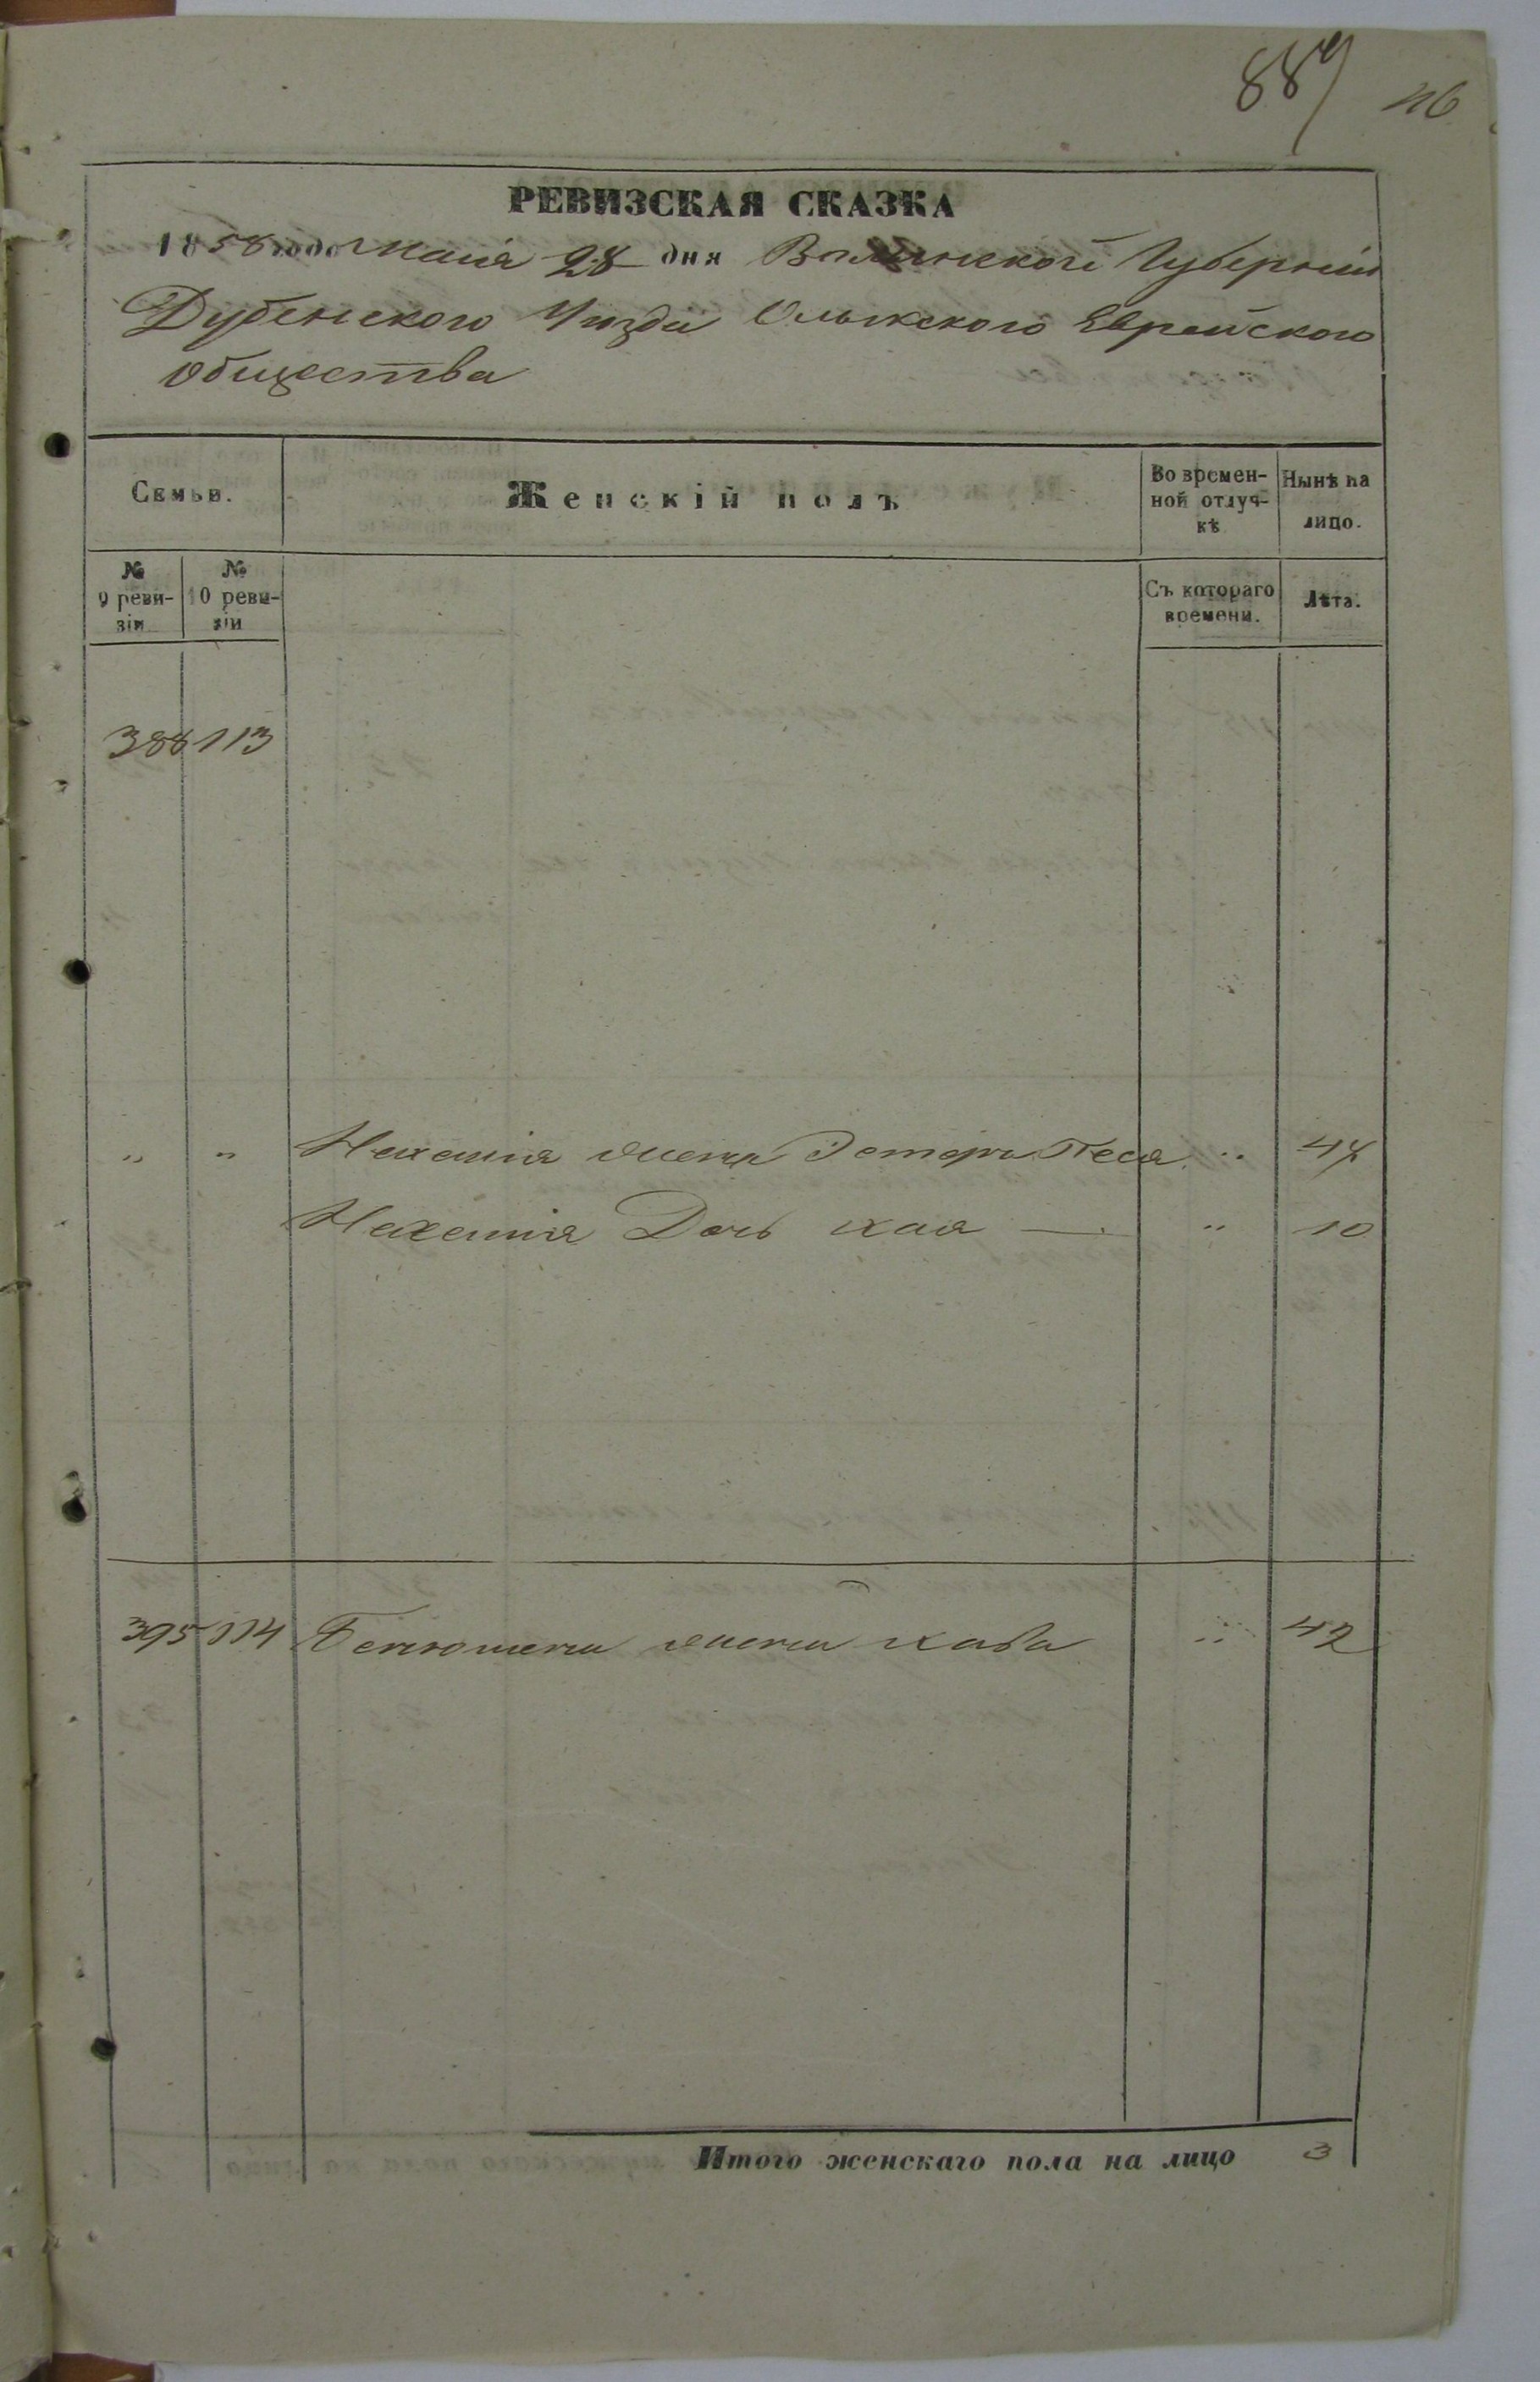 889 116
РЕВИЗСКАЯ СКАЗКА
1858 года Маія 28 дня Волынской Губерніи
Дубенского Уезда Олыкского Еврейского
Общества
Семьи. Женскій полъ Во времен-ной отлуч-кѣ Нынѣ на лицо.
№ 9 реви-зіи № 10 реви-зіи Съ котораго времени. Лѣта.
388 113
" " Нахемія жена Эстеръ Песя " 47
Нахемія Дочь Хая — " 10
395 114 жена Хава " 42
Итого женскаго пола на лицо 3